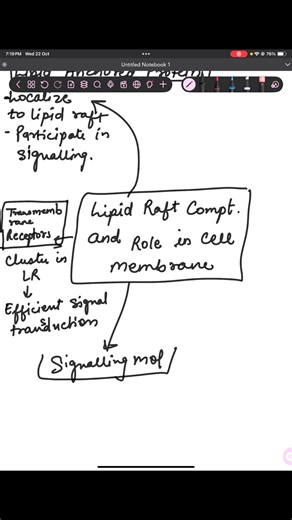 7:19 PM Wed 22 Oct
76%
Untitled Notebook 1
Lipid Anchored Proteins
- Localize
to lipid raft
- Participate in
signalling.
Transmemb
rane
Receptors
Cluster in
LR
↓
Efficient signal
transduction
Lipid Raft Compt.
and Role in cell
membrane
Signalling mol